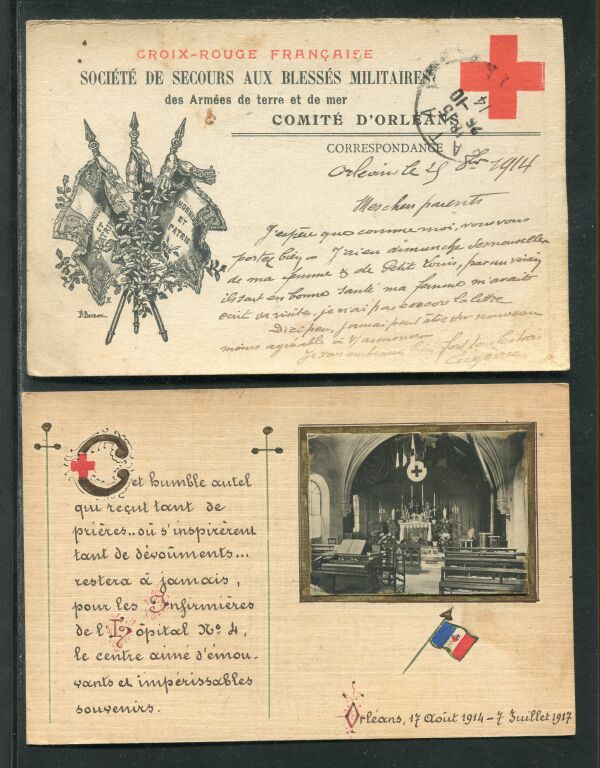 CROIX-ROUGE FRANÇAISE
SOCIÉTÉ DE SECOURS AUX BLESSÉS MILITAIRES
des Armées de terre et de mer
COMITÉ D'ORLÉANS
CORRESPONDANCE
Orléans le 25 8bre 1914
Mes chers parents
J'espère que comme moi, vous vous
portez bien - J'ai eu dimanche des nouvelles
de ma femme & de Petit Louis, par un voisin
ils sont en bonne santé ma femme m'avait
écrit sa visite, je n'ai pas encore la lettre
D'ici peu, j'aurai peut être du nouveau
moins agréable à t'annoncer
Je vous embrasse bien fort tous les trois
HONNEUR
ET
PATRIE
Cet humble autel
qui reçut tant de
prières.. où s'inspirèrent
tant de dévoûments...
restera à jamais,
pour les Infirmières
de l'Hôpital No 4,
le centre aimé d'émou-
vants et impérissables
souvenirs.
Orléans, 17 Août 1914 - 7 Juillet 1917